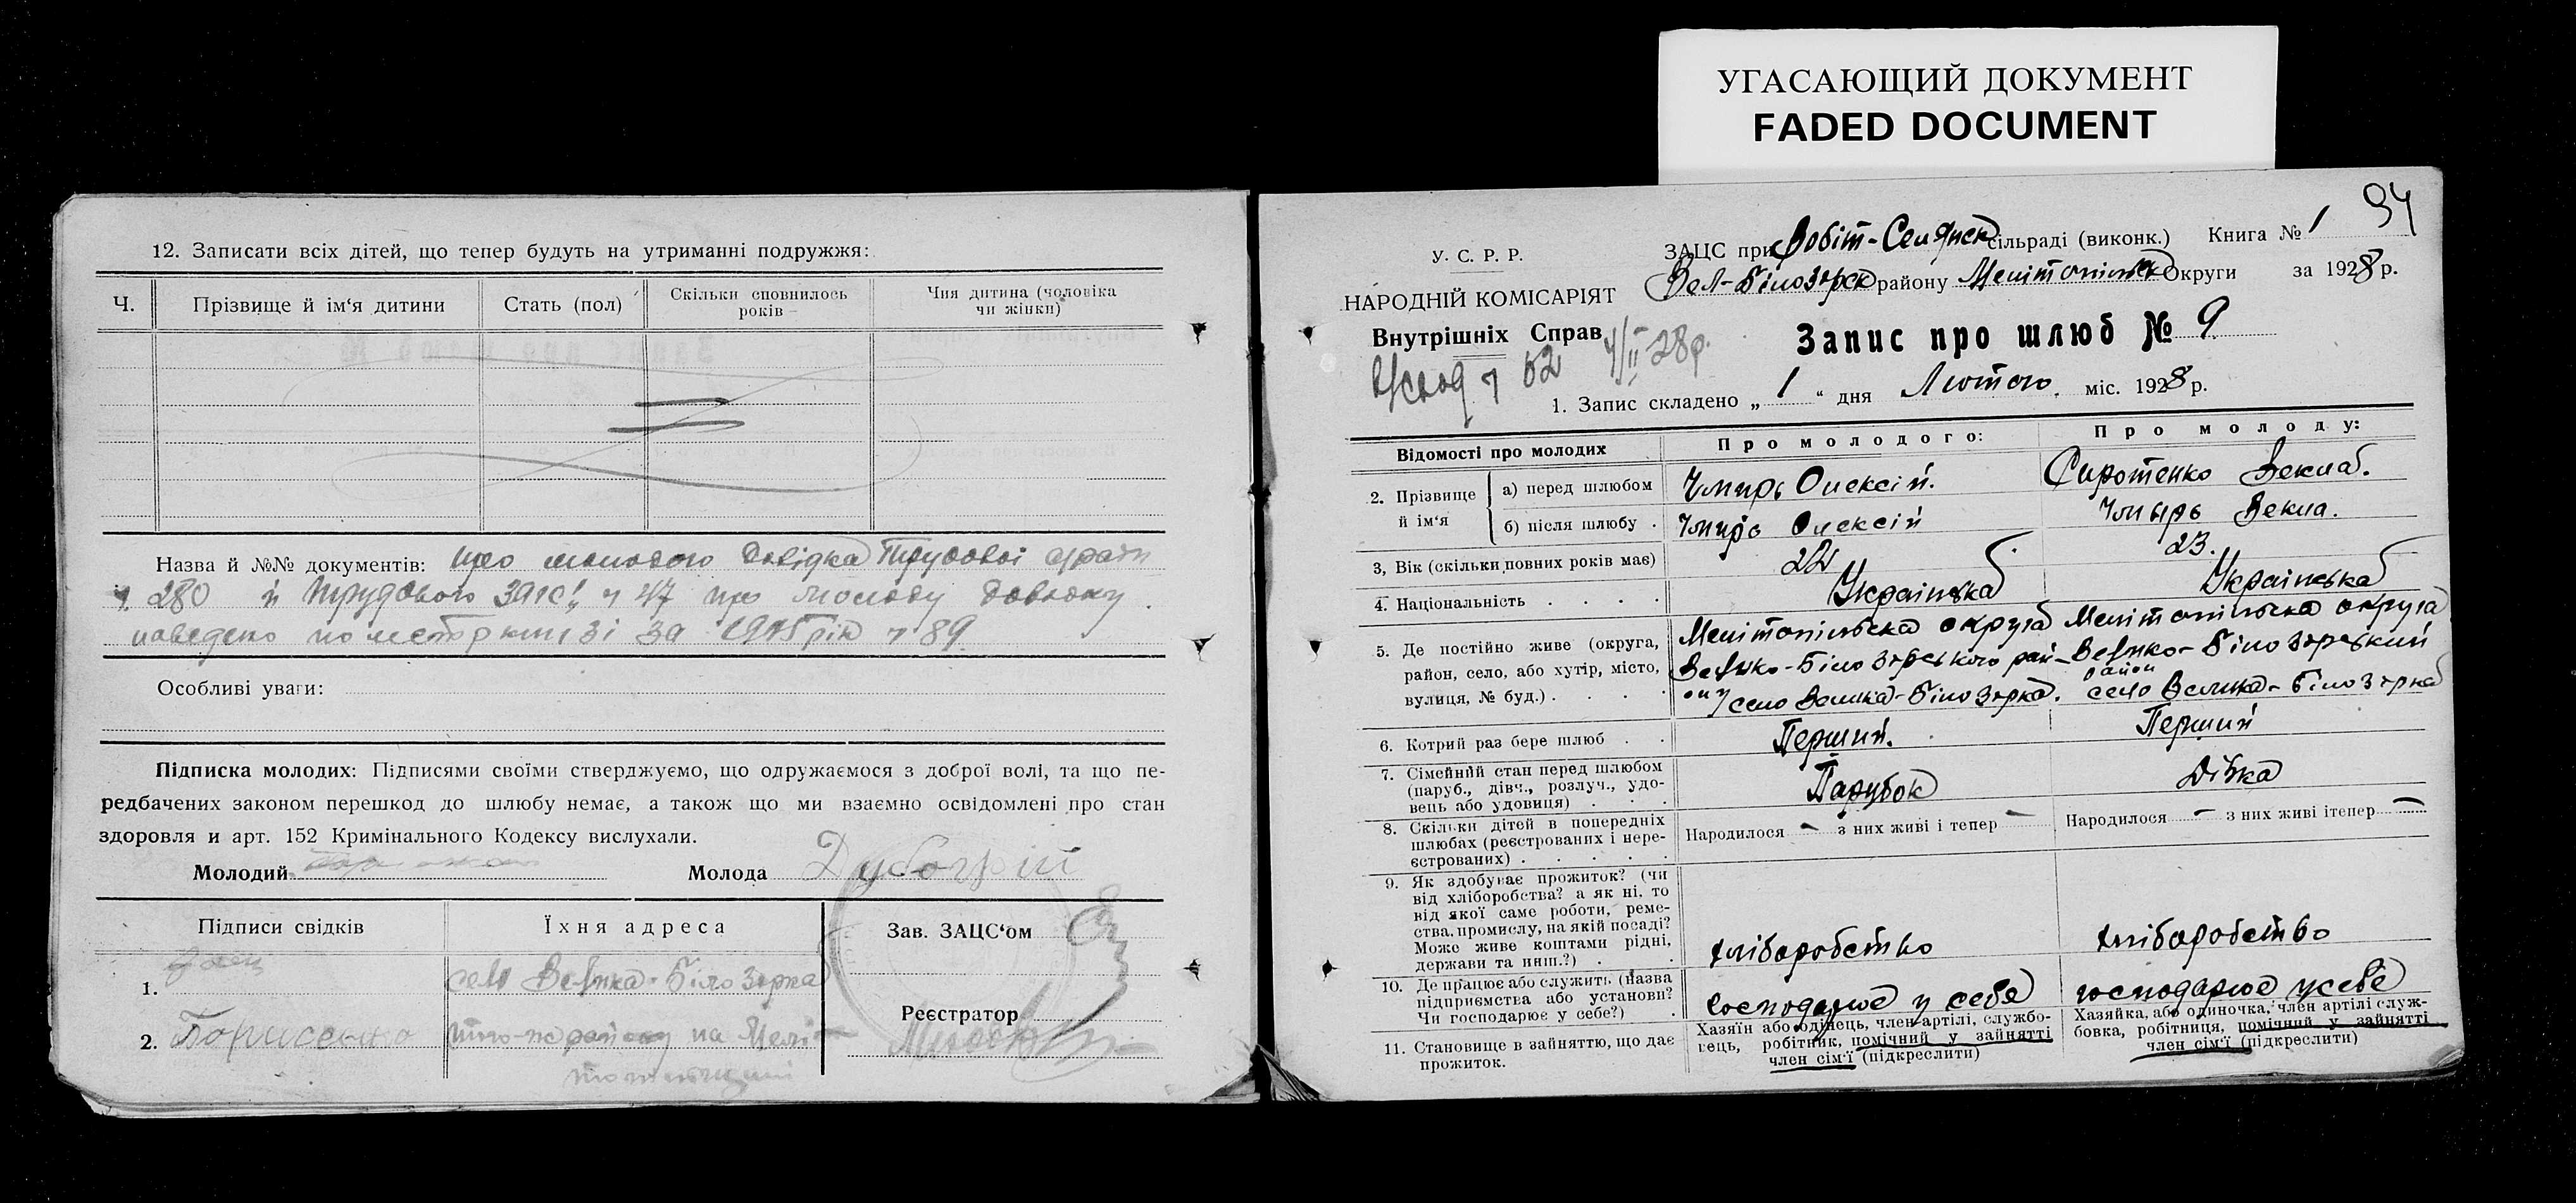 УГАСАЮЩИЙ ДОКУМЕНТ
FADED DOCUMENT
12. Записати всіх дітей, що тепер будуть на утриманні подружжя:
Ч. Прізвище й ім‘я дитини Стать (пол) Скільки сповнилось років Чия дитина (чоловіка чи жінки)
Назва й №№ документів: про молодого Довідка Трудової
ч. 280 й Трудового ч 47 про молоду
наведено за 1905 рік ч 89
Особливі уваги:
Підписка молодих: Підписями своїми стверджуємо, що одружаємося з доброї волі, та що пе-
редбачених законом перешкод до шлюбу немає, а також що ми взаємно освідомлені про стан
здоровля и арт. 152 Кримінального Кодексу вислухали.
Молодий Молода
Підписи свідків Їхня адреса Зав. ЗАЦС‘ом
1. село Велика-Білозірка
2. Борисенко на Мелі-
Реєстратор
94
У. С. Р. Р.
НАРОДНІЙ КОМІСАРІЯТ
Внутрішніх Справ
ч 62 4/II-28р.
ЗАЦС при Робіт-Селянск сільраді (виконк.) Книга № 1
Вел-Білозірск району Мелітопільськ Округи за 1928 р.
Запис про шлюб № 9
1. Запис складено „ 1 “ дня Лютого міс. 1928 р.
Відомості про молодих Про молодого: Про молоду:
2. Прізвище й ім‘я
а) перед шлюбом Чмирь Олексій. Сиротенко Векла.
б) після шлюбу Чмирь Олексій Чмырь Векла.
3, Вік (скільки повних років має) 22 23.
4. Національність Українська Українська
5. Де постійно живе (округа, Мелітопільська округа Мелітопільска округа
район, село, або хутір, місто, Велико-Білозірського рай- Велико-Білозірський район
вулиця, № буд.) ону село Велика-Білозірка. село Велика-Білозірка
6. Котрий раз бере шлюб Перший. Перший
7. Сімейний стан перед шлюбом
(паруб., дівч., розлуч., удо- Парубок Дівка
вець або удовиця)
8. Скільки дітей в попередніх Народилося – з них живі і тепер – Народилося – з них живі ітепер –
шлюбах (реєстрованих і нере-
єстрованих)
9. Як здобуває прожиток? (чи
від хліборобства? а як ні, то
від якої саме роботи, реме-
ства, промислу, на якій посаді?
Може живе коштами рідні, хліборобство хліборобство
держави та инш.?)
10. Де працює або служить (назва
підприємства або установи? господарює у себе господарює у себе
Чи господарює у себе?)
11. Становище в зайняттю, що дає
прожиток.
Хазяїн або одінець, член артілі, службо-
вець, робітник, помічний у зайнятті
член сім‘ї (підкреслити)
Хазяйка, або одиночка, член артілі служ-
бовка, робітниця, помічний у зайнятті
член сім‘ї (підкреслити)